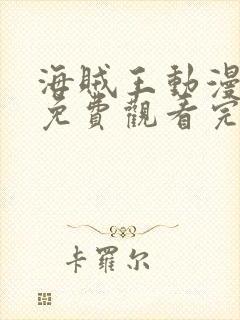 海賊王動漫
免費觀看完
卡羅尔